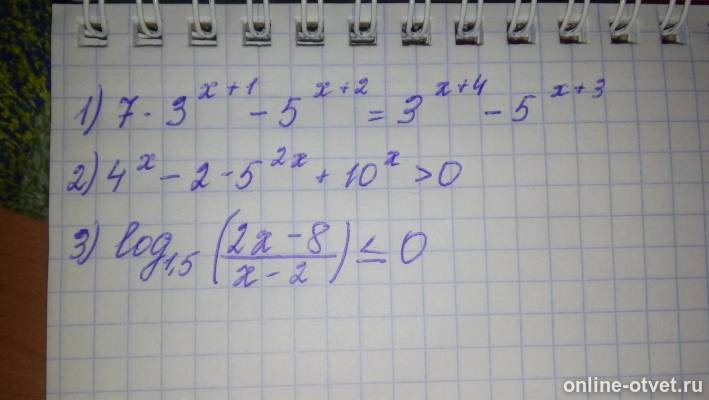 1) 7·3^{x+1} - 5^{x+2} = 3^{x+4} - 5^{x+3}
2) 4^x - 2·5^{2x} + 10^x > 0
3) log_{1,5} ((2x-8)/(x-2)) ≤ 0
online-otvet.ru